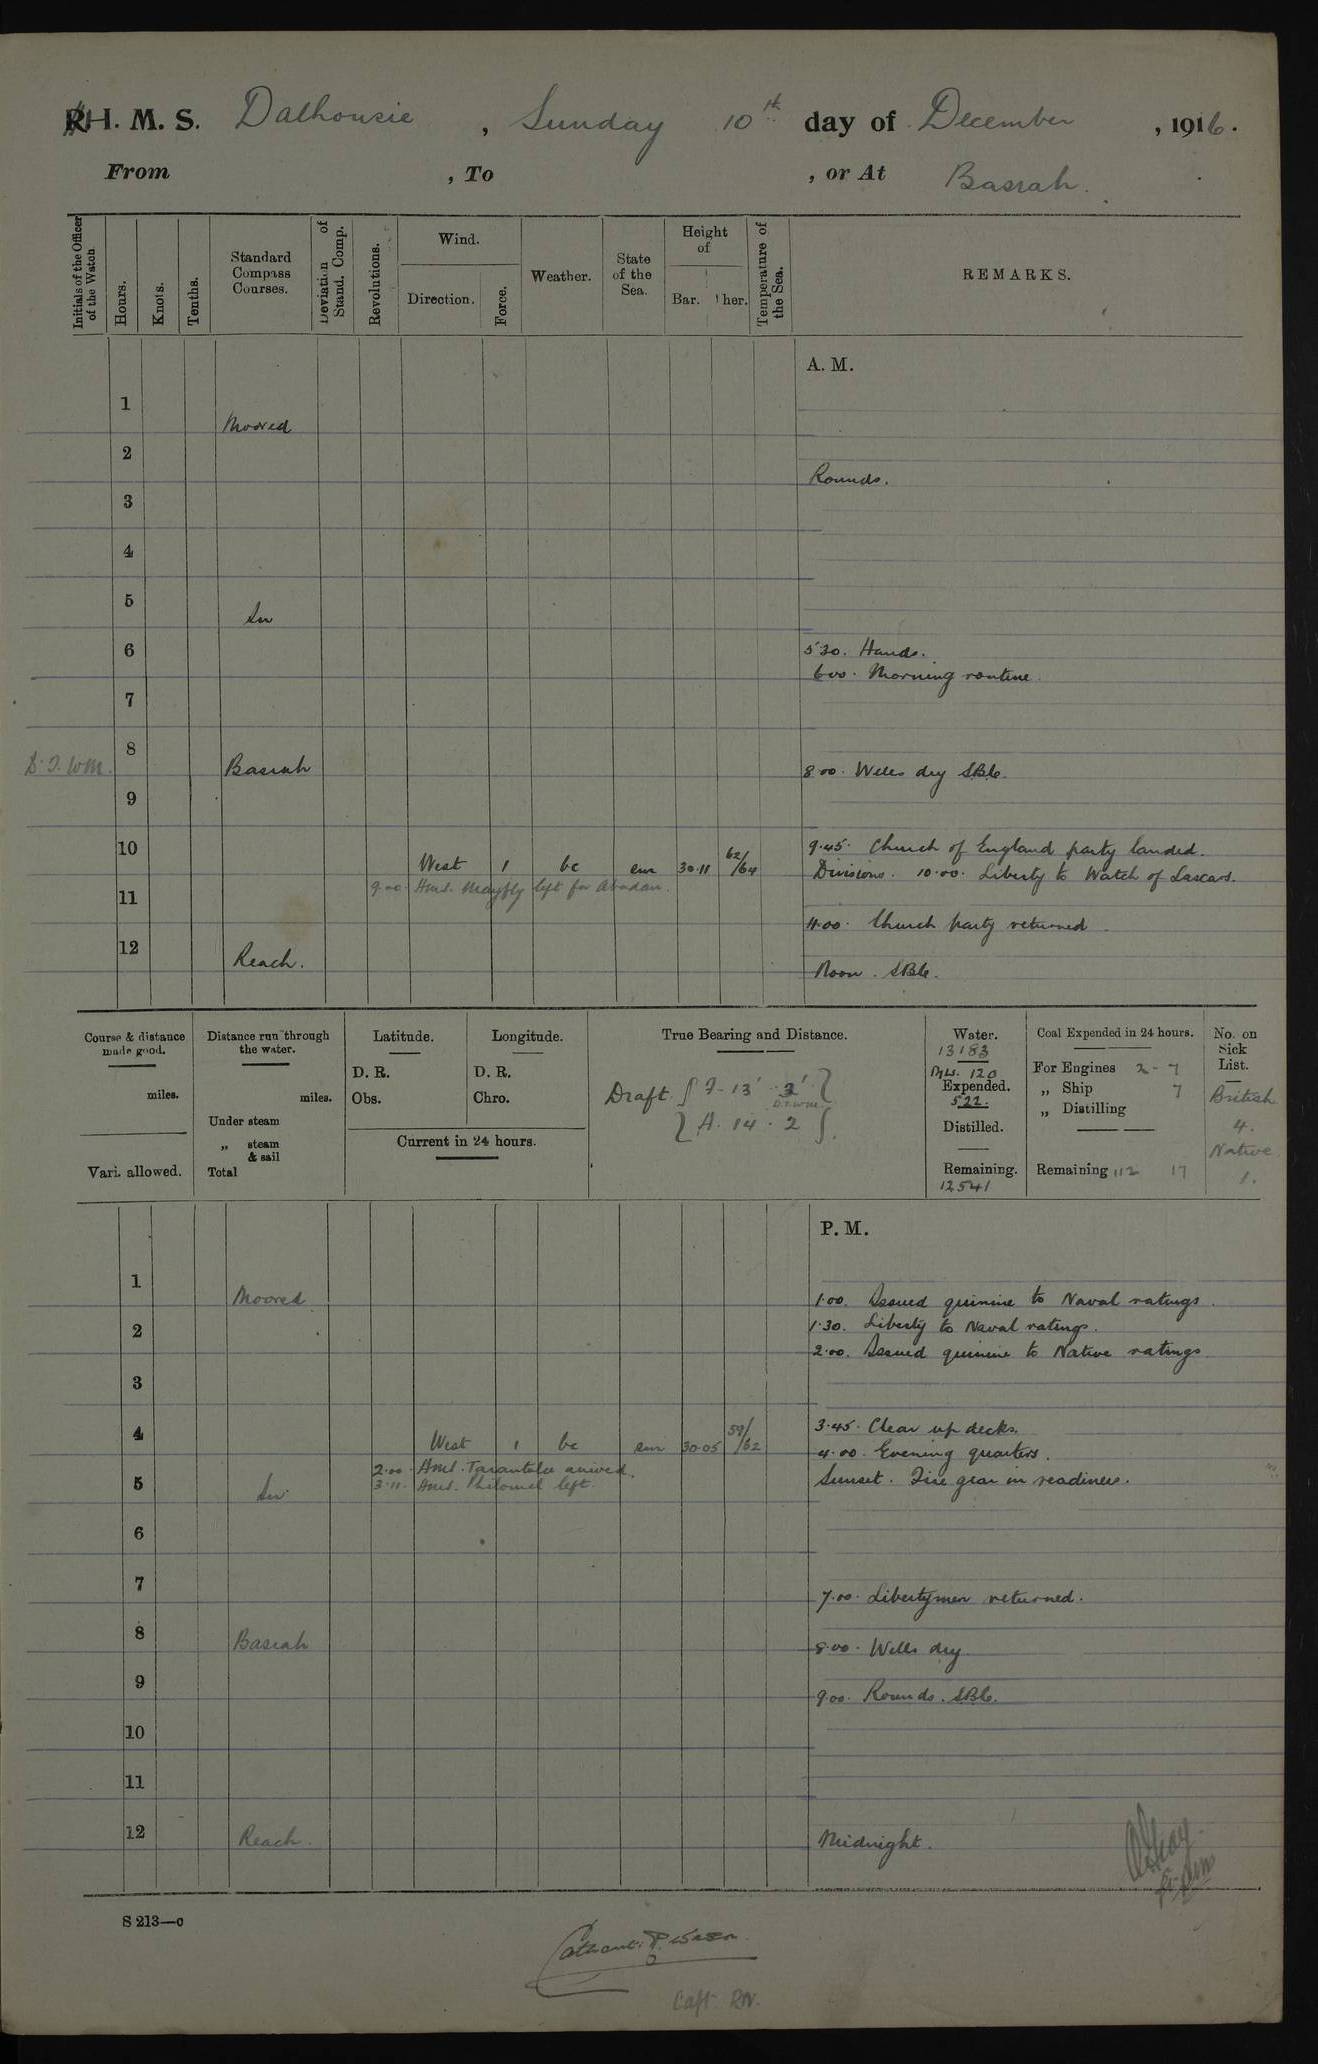 H. M. S. Dalhousie, Sunday 10th day of December, 1916.
From , To , or At Basrah.
Initials of the Officer of the Watch
Hours.
Knots.
Tenths.
Standard Compass Courses.
Deviation of Stand. Comp.
Revolutions.
Wind.
Direction.
Force.
Weather.
State of the Sea.
Height of
Bar. Ther.
Temperature of the Sea.
REMARKS.
A. M.
1
Moored
2
Rounds.
3
4
5
In
6 5.30. Hands.
6.00. Morning routine
7
8
D.T. WM. Basrah 8.00. Wells dry SBC.
9
10 9.45. Church of England party landed.
West 1 bc sm 30.11 62/64 Divisions. 10.00. Liberty to Watch of Lascars.
9.00. HMS. Mayfly left for Abadan.
11
11.00. Church party returned
12
Reach. Noon. SBC.
Course & distance made good.
miles.
Vari. allowed.
Distance run through the water.
miles.
Under steam
„ steam & sail
Total
Latitude.
D. R.
Obs.
Longitude.
D. R.
Chro.
Current in 24 hours.
True Bearing and Distance.
Draft { F. 13' . 3' }
D.T.WM.
{ A. 14 . 2 }
Water.
13183
120
Expended.
522.
Distilled.
Remaining.
12541
Coal Expended in 24 hours.
For Engines 2 - 7
„ Ship 7
„ Distilling
Remaining 112 17
No. on Sick List.
British
4.
Native
1.
P. M.
1
Moored 1.00. Issued quinine to Naval ratings.
2 1.30. Liberty to Naval ratings.
2.00. Issued quinine to Native ratings
3
4 3.45. Clear up decks.
West 1 bc sm 30.05 59/62 4.00. Evening quarters.
2.00. HMS. Tarantula arrived.
5 3.11. HMS. Philomel left. Sunset. Fire gear in readiness.
In
6
7
7.00. Libertymen returned.
8
Basrah 8.00. Wells dry
9
9.00. Rounds. SBC.
10
11
12
Reach. Midnight.
S 213—c
Capt RN.